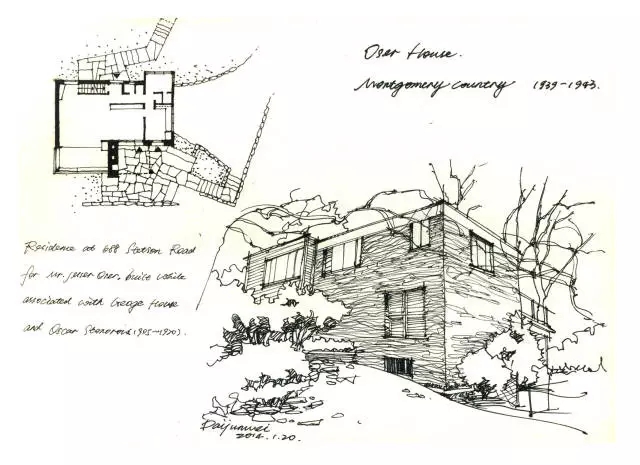 Oser House.
Montgomery Country 1939-1943.
Residence at 688 Stetson Road
for Mr. Jesser Oser, built while
associated with George House
and Oscar Stonorov (1905-1970).
Daijunwei
2014.1.20.